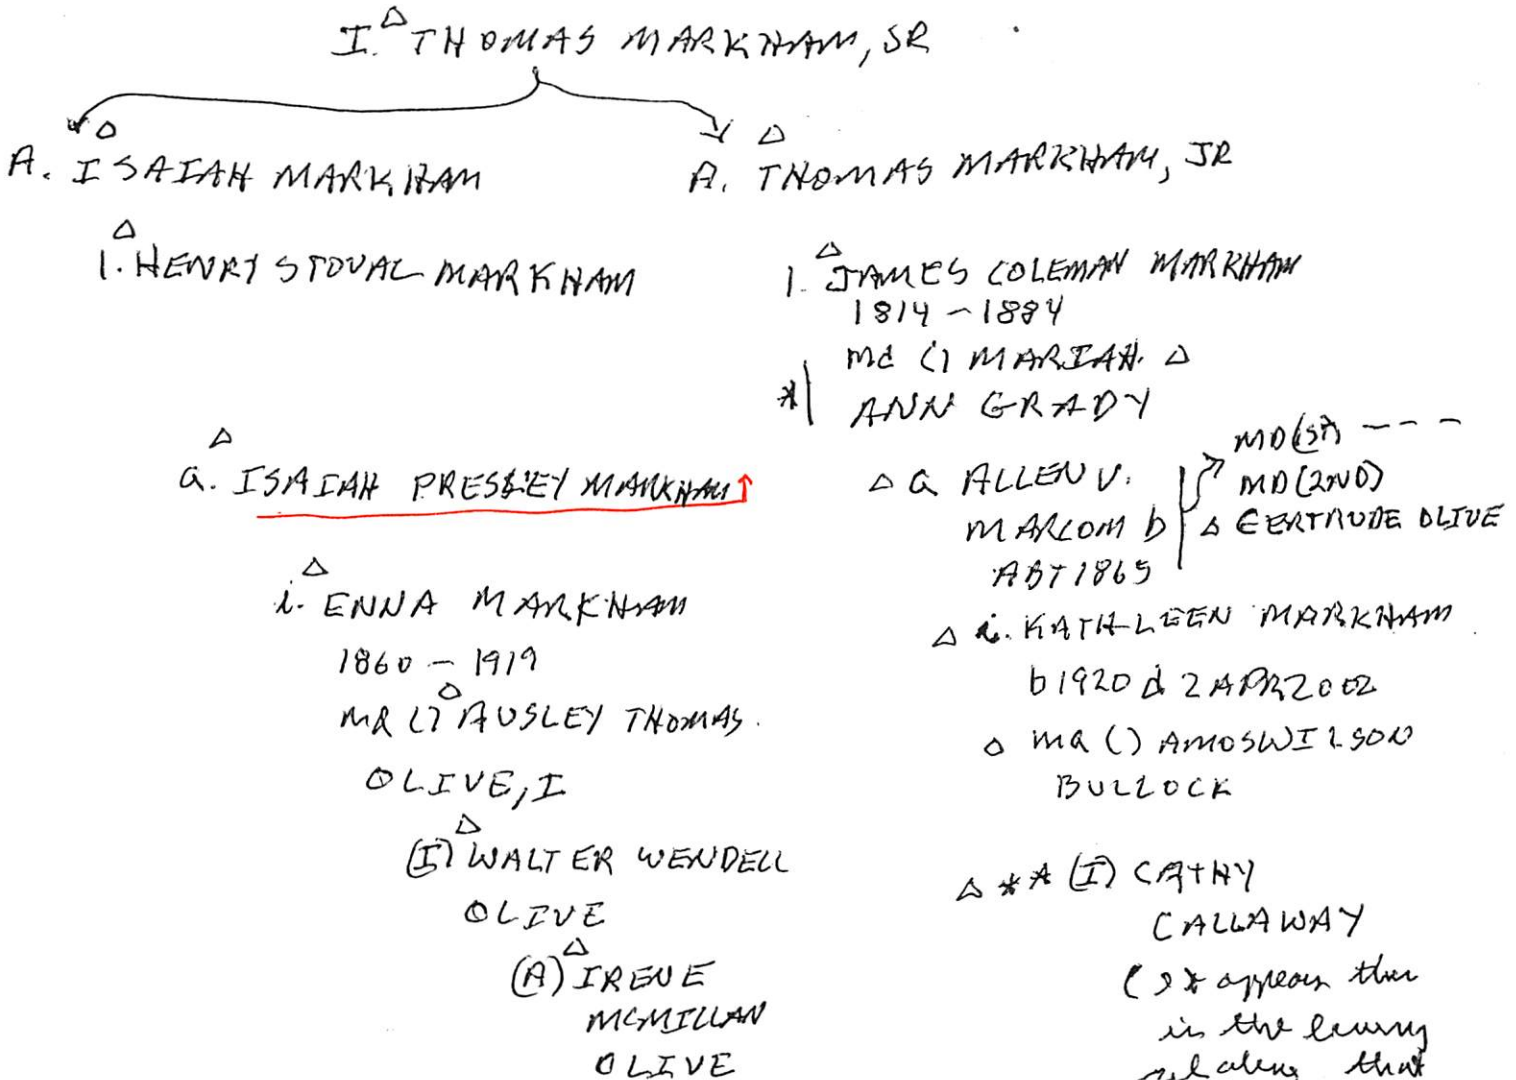 I. THOMAS MARKHAM, SR
A. ISAIAH MARKHAM
1. HENRY STOVAL MARKHAM
a. ISAIAH PRESLEY MARKHAM
i. ENNA MARKHAM
1860 - 1919
md () AUSLEY THOMAS.
OLIVE, I
(I) WALTER WENDELL
OLIVE
(A) IRENE
MCMILLAN
OLIVE
A. THOMAS MARKHAM, JR
1. JAMES COLEMAN MARKHAM
1814 - 1884
md () MARIAH
* ANN GRADY
a ALLEN V.
MARCOM b
ABT 1865
MD (1ST) - - -
MD (2ND)
GERTRUDE OLIVE
i. KATHLEEN MARKHAM
b 1920 d 2 APR 2002
md () AMOS WILSON
BULLOCK
** (I) CATHY
CALLAWAY
appears
in the
that